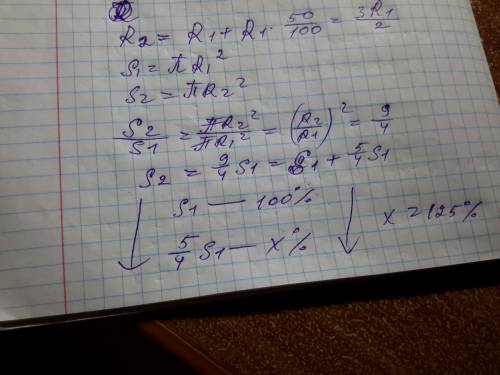 R2 = R1 + R1 · 50/100 = 3R1/2
S1 = πR1²
S2 = πR2²
S2/S1 = πR2²/πR1² = (R2/R1)² = 9/4
S2 = 9/4 S1 = S1 + 5/4 S1
S1 — 100%
5/4 S1 — x%
x = 125%